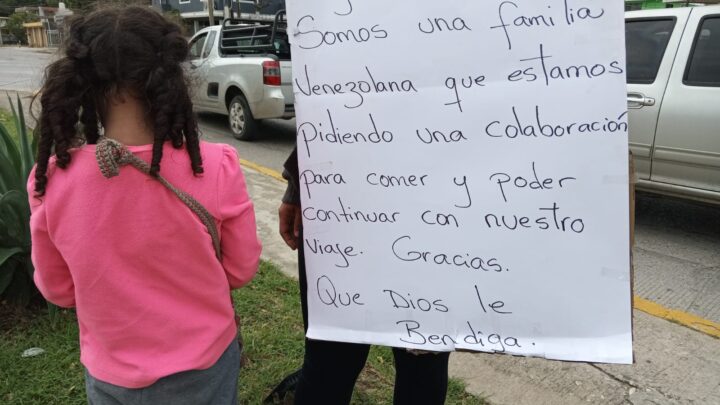 Somos una familia
Venezolana que estamos
Pidiendo una colaboración
para comer y poder
continuar con nuestro
viaje. Gracias.
Que Dios le
Bendiga.